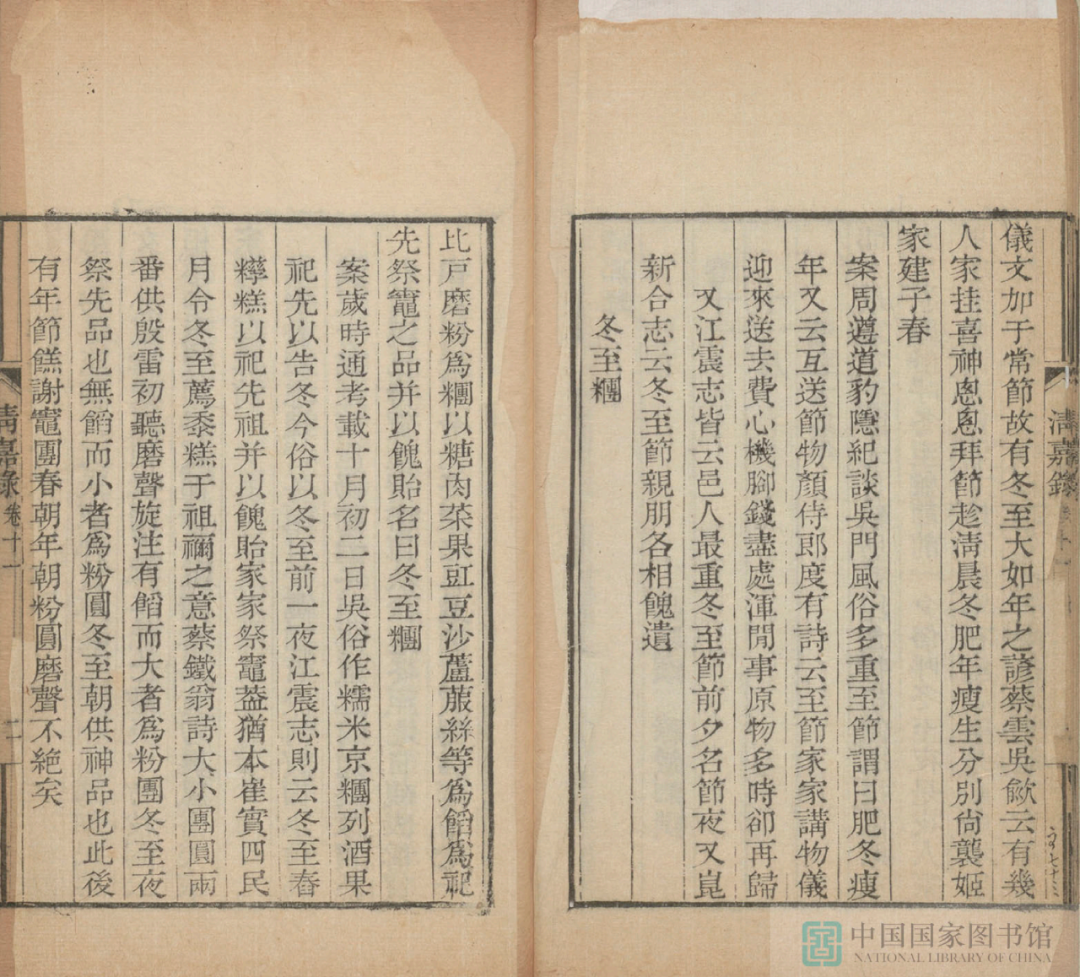 儀文加于常節故有冬至大如年之諺蔡雲吳歈云有幾
人家挂喜神悤悤拜節趁淸晨冬肥年瘦生分別尙襲姬
家建子春
案周遵道豹隱紀談吳門風俗多重至節謂曰肥冬瘦
年又云互送節物顏侍郎度有詩云至節家家講物儀
迎來送去費心機腳錢盡處渾閒事原物多時卻再歸
又江震志皆云邑人最重冬至節前夕名節夜又崑
新合志云冬至節親朋各相餽遺
冬至糰
比戸磨粉爲糰以糖肉菜果豇豆沙蘆菔絲等爲餡爲祀
先祭竈之品并以餽貽名曰冬至糰
案歲時通考載十月初二日吳俗作糯米京糰列酒果
祀先以告冬今俗以冬至前一夜江震志則云冬至舂
糕以祀先祖并以餽貽家家祭竈葢猶本崔寔四民
月令冬至薦黍糕于祖禰之意蔡鐵翁詩大小團圓兩
番供殷雷初聽磨聲旋注有餡而大者爲粉團冬至夜
祭先品也無餡而小者爲粉圓冬至朝供神品也此後
有年節餻謝竈團春朝年朝粉圓磨聲不絶矣
淸嘉錄
淸嘉錄 卷十一
二
中国国家图书馆
NATIONAL LIBRARY OF CHINA